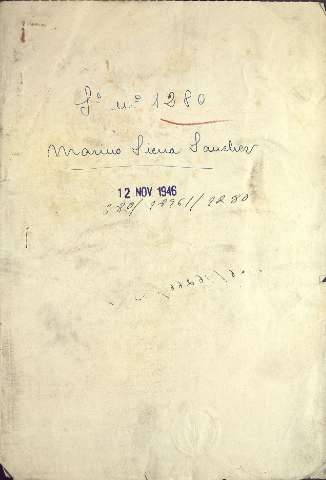 Jº nº 1280
Marino Siena Sanchez
12 NOV 1946
280/12961/1280